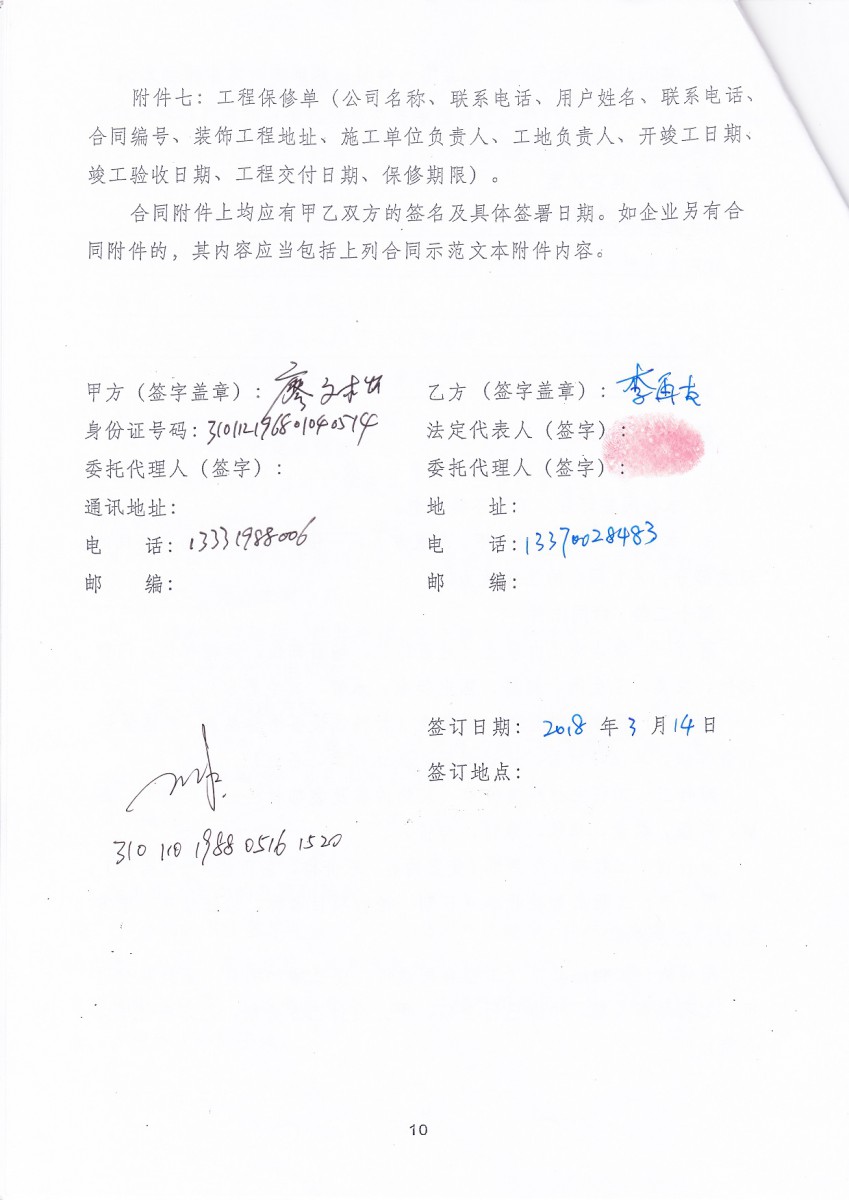 附件七：工程保修单（公司名称、联系电话、用户姓名、联系电话、
合同编号、装饰工程地址、施工单位负责人、工地负责人、开竣工日期、
竣工验收日期、工程交付日期、保修期限）。
合同附件上均应有甲乙双方的签名及具体签署日期。如企业另有合
同附件的，其内容应当包括上列合同示范文本附件内容。
甲方（签字盖章）：廖文
身份证号码：310112196801040514
委托代理人（签字）：
通讯地址：
电 话：13331988006
邮 编：
乙方（签字盖章）：李再友
法定代表人（签字）：
委托代理人（签字）：
地 址：
电 话：13370028483
邮 编：
签订日期： 2018 年 3 月 14 日
签订地点：
310 110 1988 0516 1520
10